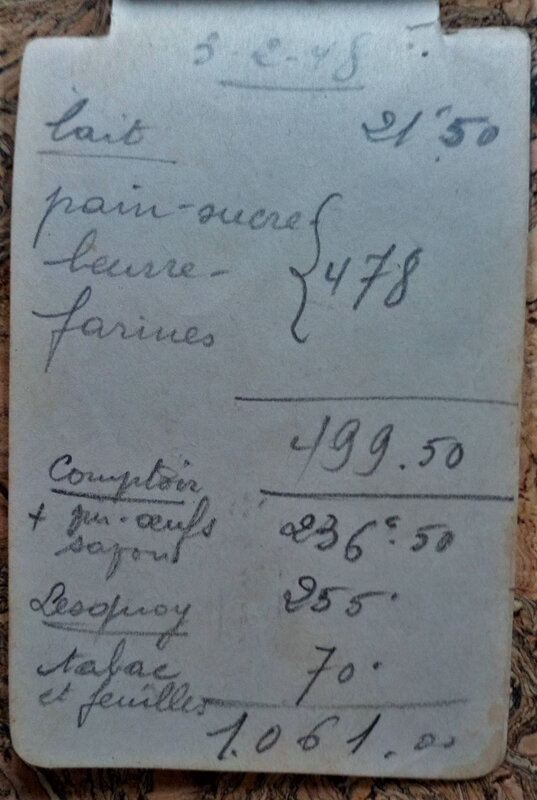 3-2-48
lait 21 50
pain-sucre
beurre- 478
farines
499.50
Comptoir
+ œufs 236 50
savon
255
tabac 70.
et feuilles
1.061.00